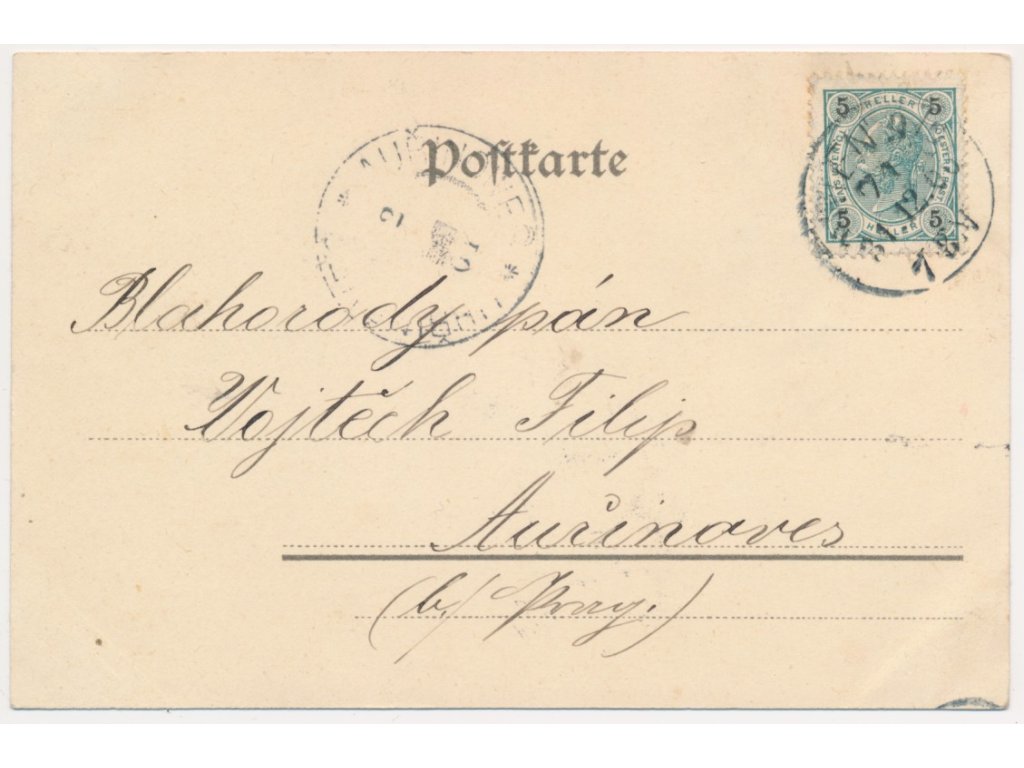 Postkarte
5 HELLER 5
5 HELLER 5
WIEN
31 12
Blahorodý pán
Vojtěch Filip
Auřinoves
(b/ Prag.)